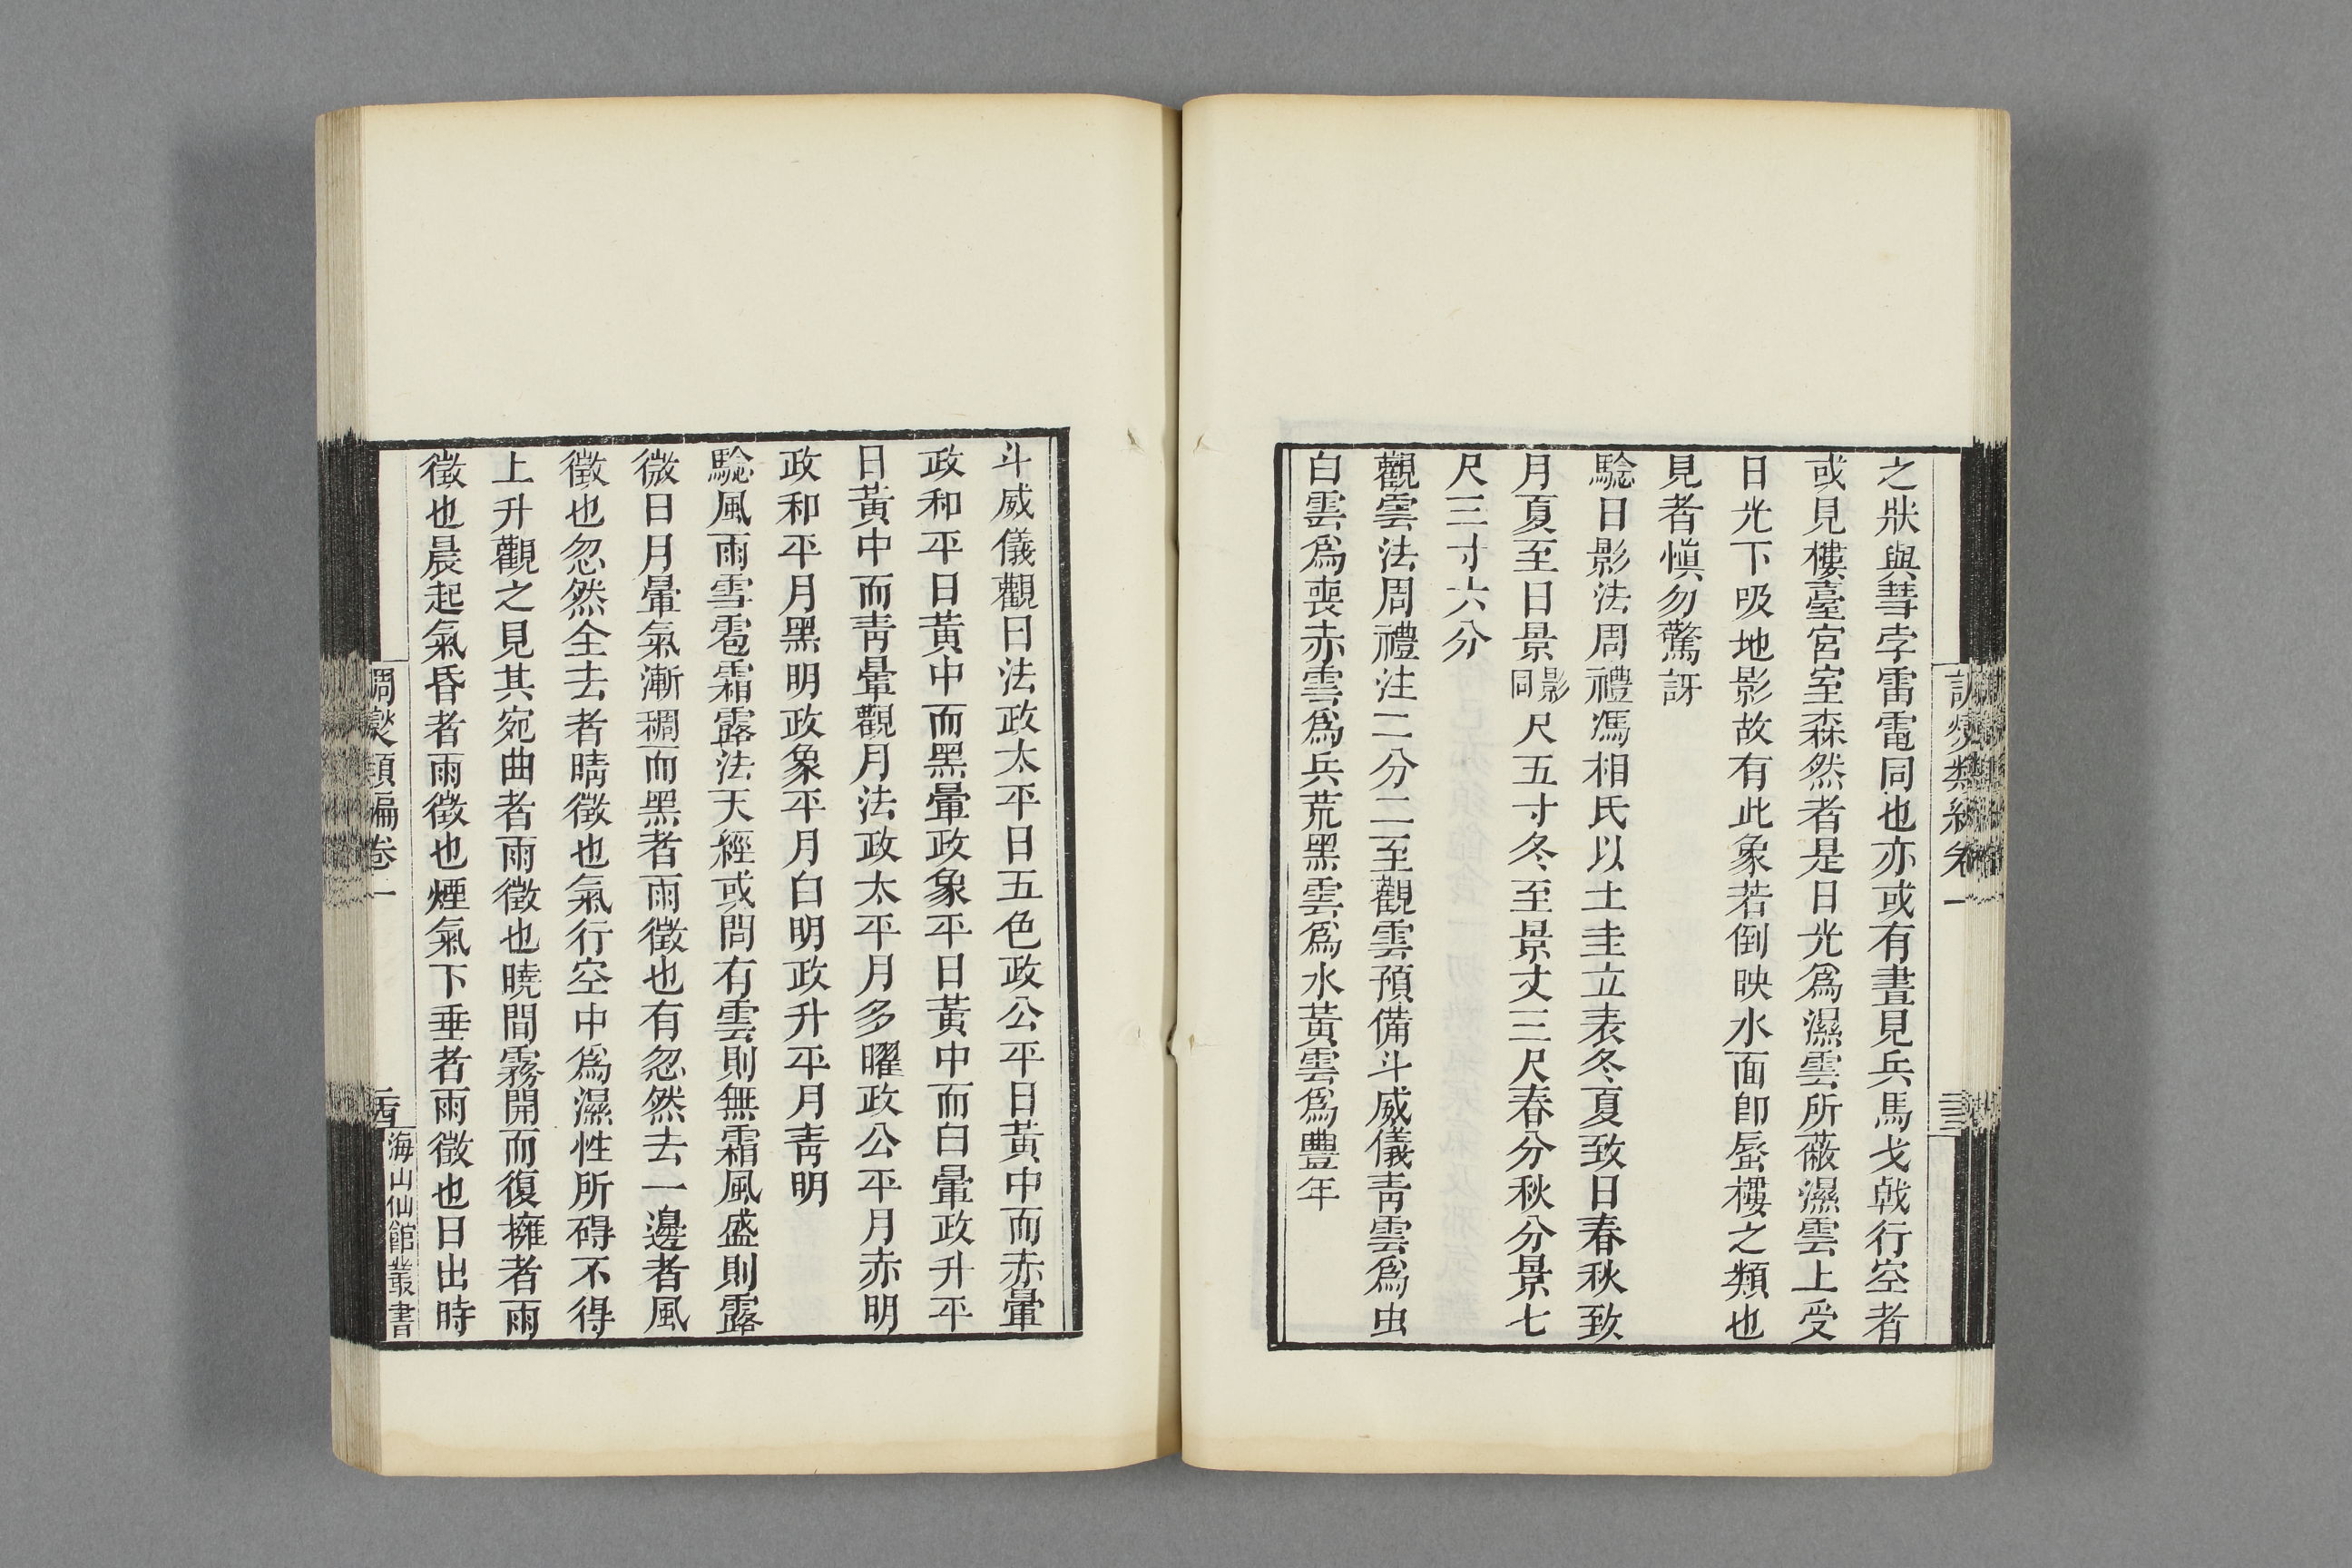 之狀與彗孛雷電同也亦或有晝見兵馬戈戟行空者
或見樓臺宮室森然者是日光爲濕雲所蔽濕雲上受
日光下吸地影故有此象若倒映水面卽蜃樓之類也
見者愼勿驚訝
騐日影法周禮馮相氏以土圭立表冬夏致日春秋致
月夏至日景影同尺五寸冬至景丈三尺春分秋分景七
尺三寸六分
觀雲法周禮注二分二至觀雲預備斗威儀靑雲爲虫
白雲爲喪赤雲爲兵荒黑雲爲水黃雲爲豐年
斗威儀觀日法政太平日五色政公平日黃中而赤暈
政和平日黃中而黑暈政象平日黃中而白暈政升平
日黃中而靑暈觀月法政太平月多曜政公平月赤明
政和平月黑明政象平月白明政升平月靑明
騐風雨雪雹霜露法天經或問有雲則無霜風盛則露
微日月暈氣漸稠而黑者雨徵也有忽然去一邊者風
徵也忽然全去者晴徵也氣行空中爲濕性所碍不得
上升觀之見其宛曲者雨徵也曉間霧開而復擁者雨
徵也晨起氣昏者雨徵也煙氣下垂者雨徵也日出時
調燮類編卷一
海山仙館叢書